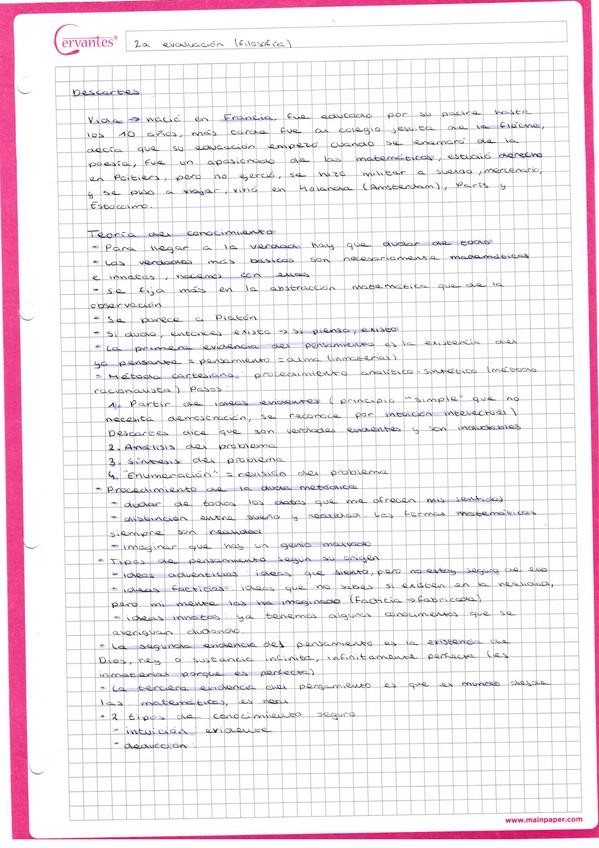 Cervantes®
2a evaluación (filosofía)
Descartes
Vida → nació en Francia, fue educado por su padre hasta
los 10 años, más tarde fue al colegio jesuita de la flèche,
decía que su educación empezó cuando se enamoró de la
poesía, fue un apasionado de las matemáticas, estudió derecho
en Poitiers, pero no ejerció, se hizo militar a sueldo, mercenario,
y se puso a viajar, vivió en Holanda (Amsterdam), París y
Estocolmo.
Teoría del conocimiento
- Para llegar a la verdad hay que dudar de todo
- Las verdades más básicas son necesariamente matemáticas
e innatas, nacemos con ellas
- Se fija más en la abstracción matemática que de la
observación
- Se parece a Platón
- Si dudo, entonces existo → si pienso, existo
- La primera evidencia del pensamiento es la existencia del
yo pensante = pensamiento = alma (inmaterial)
- Método cartesiano: procedimiento analítico-sintético (método
racionalista) Pasos:
1. Partir de ideas evidentes (principio "simple" que no
necesita demostración, se reconoce por intuición intelectual)
Descartes dice que son verdades evidentes y son indudables
2. Análisis del problema
3. Síntesis del problema
4. "Enumeración" = revisión del problema
- Procedimiento de la duda metódica
- dudar de todos los datos que me ofrecen mis sentidos
- distinción entre sueño y realidad. Las formas matemáticas
siempre son realidad
- imaginar que hay un genio malvado
- Tipos de pensamiento según su origen
- ideas adventicias: ideas que siento, pero no estoy seguro de ello
- ideas facticias: ideas que no sabes si existen en la realidad,
pero mi mente las ha imaginado (facticia → fabricada)
- ideas innatas: ya tenemos algunos conocimientos que se
averiguan dudando
- La segunda evidencia del pensamiento es la existencia de
Dios, rey o sustancia infinita, infinitamente perfecta (es
inmaterial porque es perfecta)
- La tercera evidencia del pensamiento es que el mundo desde
las matemáticas, es real
- 2 tipos de conocimiento seguro
- intuición evidente
- deducción
www.mainpaper.com